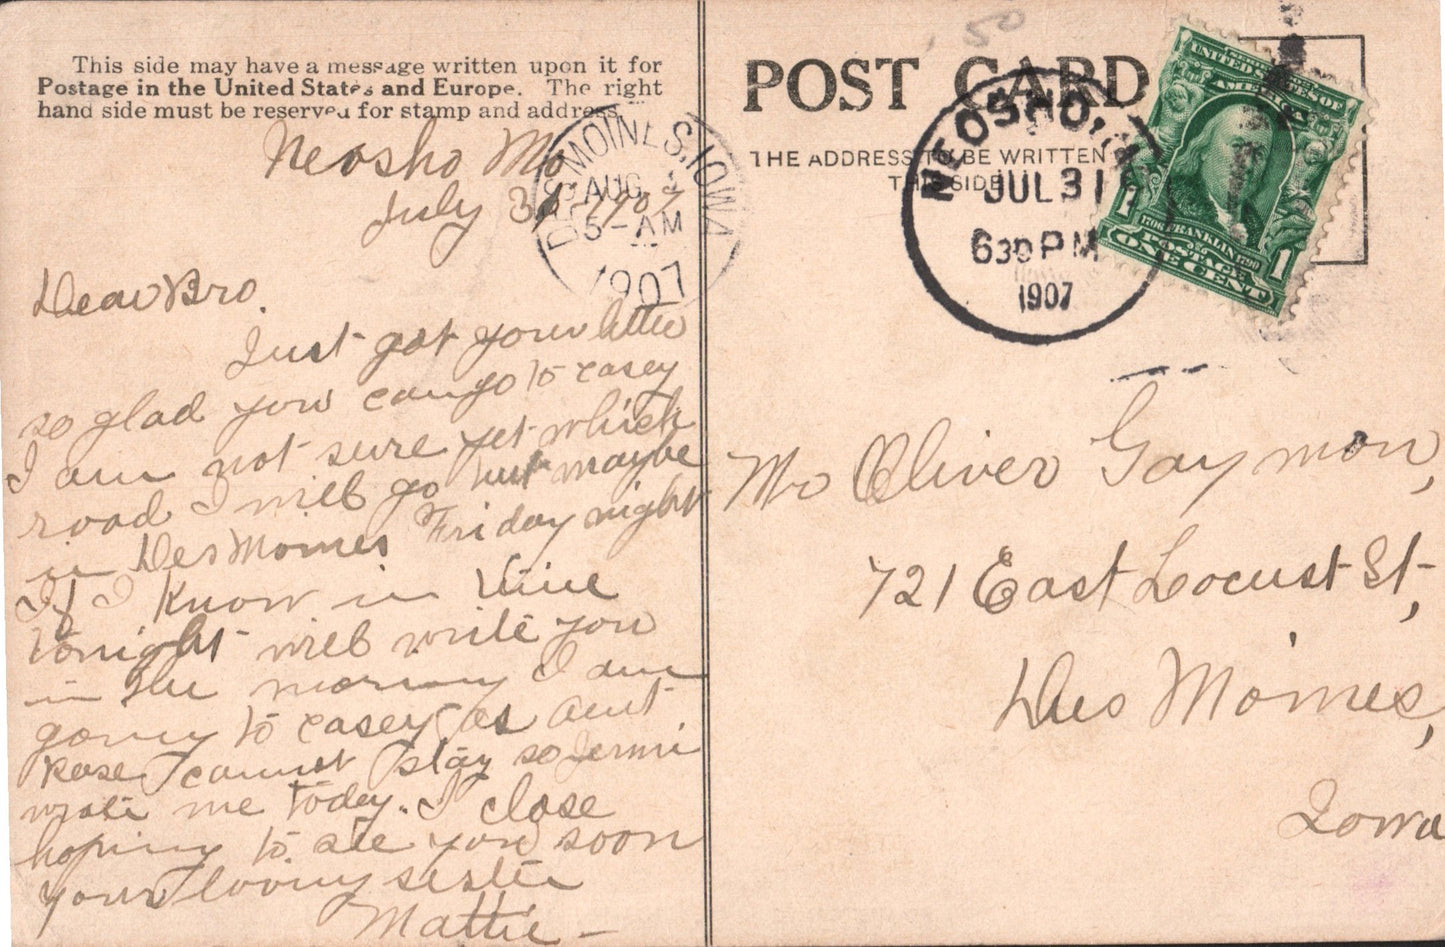 This side may have a message written upon it for
Postage in the United States and Europe. The right
hand side must be reserved for stamp and address.
Neosho Mo
July 31 - 1907
Dear Bro.
Just got your letter
so glad you can go to casey
I am not sure yet which
road I will go but maybe
in Des Moines Friday night
If I know in time
tonight will write you
in the morning I am
going to casey as aunt
Rose cannot stay so
wrote me today. I close
hoping to see you soon
your loving sister
Mattie -
DES MOINES, IOWA
AUG
5 - AM
1907
50
POST CARD
THE ADDRESS TO BE WRITTEN
THIS SIDE
NEOSHO,
JUL 31
630 PM
1907
UNITED STATES OF
AMERICA
1706 FRANKLIN 1790
1 POSTAGE 1
ONE CENT
Mr Oliver Gaymon,
721 East Locust St,
Des Moines,
Iowa